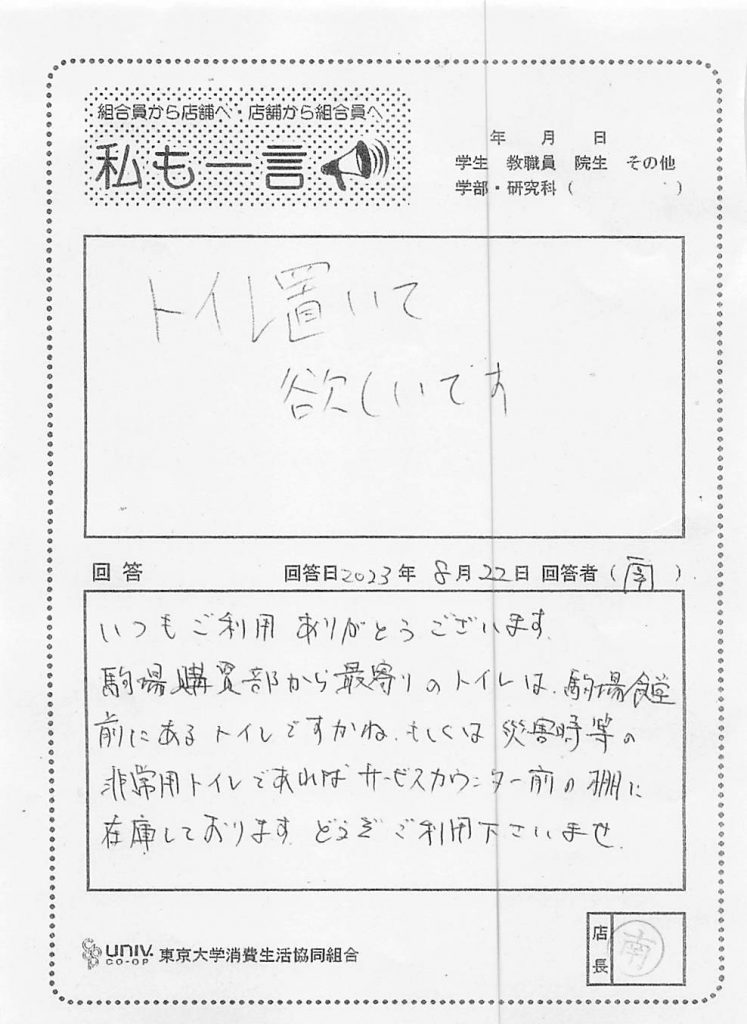 組合員から店舗へ・店舗から組合員へ
私も一言
年 月 日
学生 教職員 院生 その他
学部・研究科（ ）
トイレ置いて
欲しいです
回答 回答日2023年 8月22日 回答者（南）
いつもご利用ありがとうございます。
駒場購買部から最寄りのトイレは、駒場食堂
前にあるトイレですかね。もしくは災害時等の
非常用トイレであればサービスカウンター前の棚に
在庫しております。どうぞご利用下さいませ。
UNIV. CO-OP 東京大学消費生活協同組合
店長 南